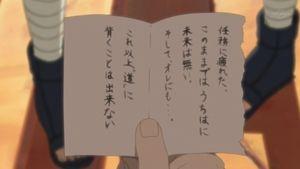 任務に疲れた、
このままではうちはに
未来は無い、
そして、オレにも…。
これ以上、“道”に
背くことは出来ない